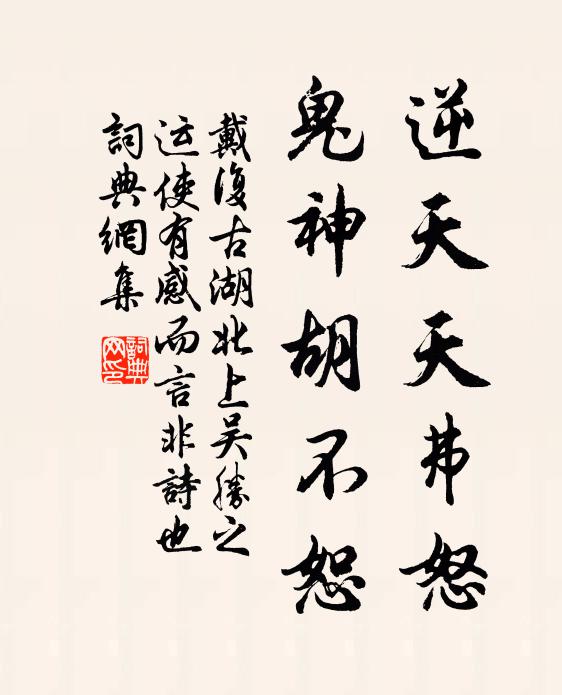 逆天天弗怒
鬼神胡不恕
戴復古湖北上吴勝之
运使有感而言非詩也
詞典網集
詞典網印